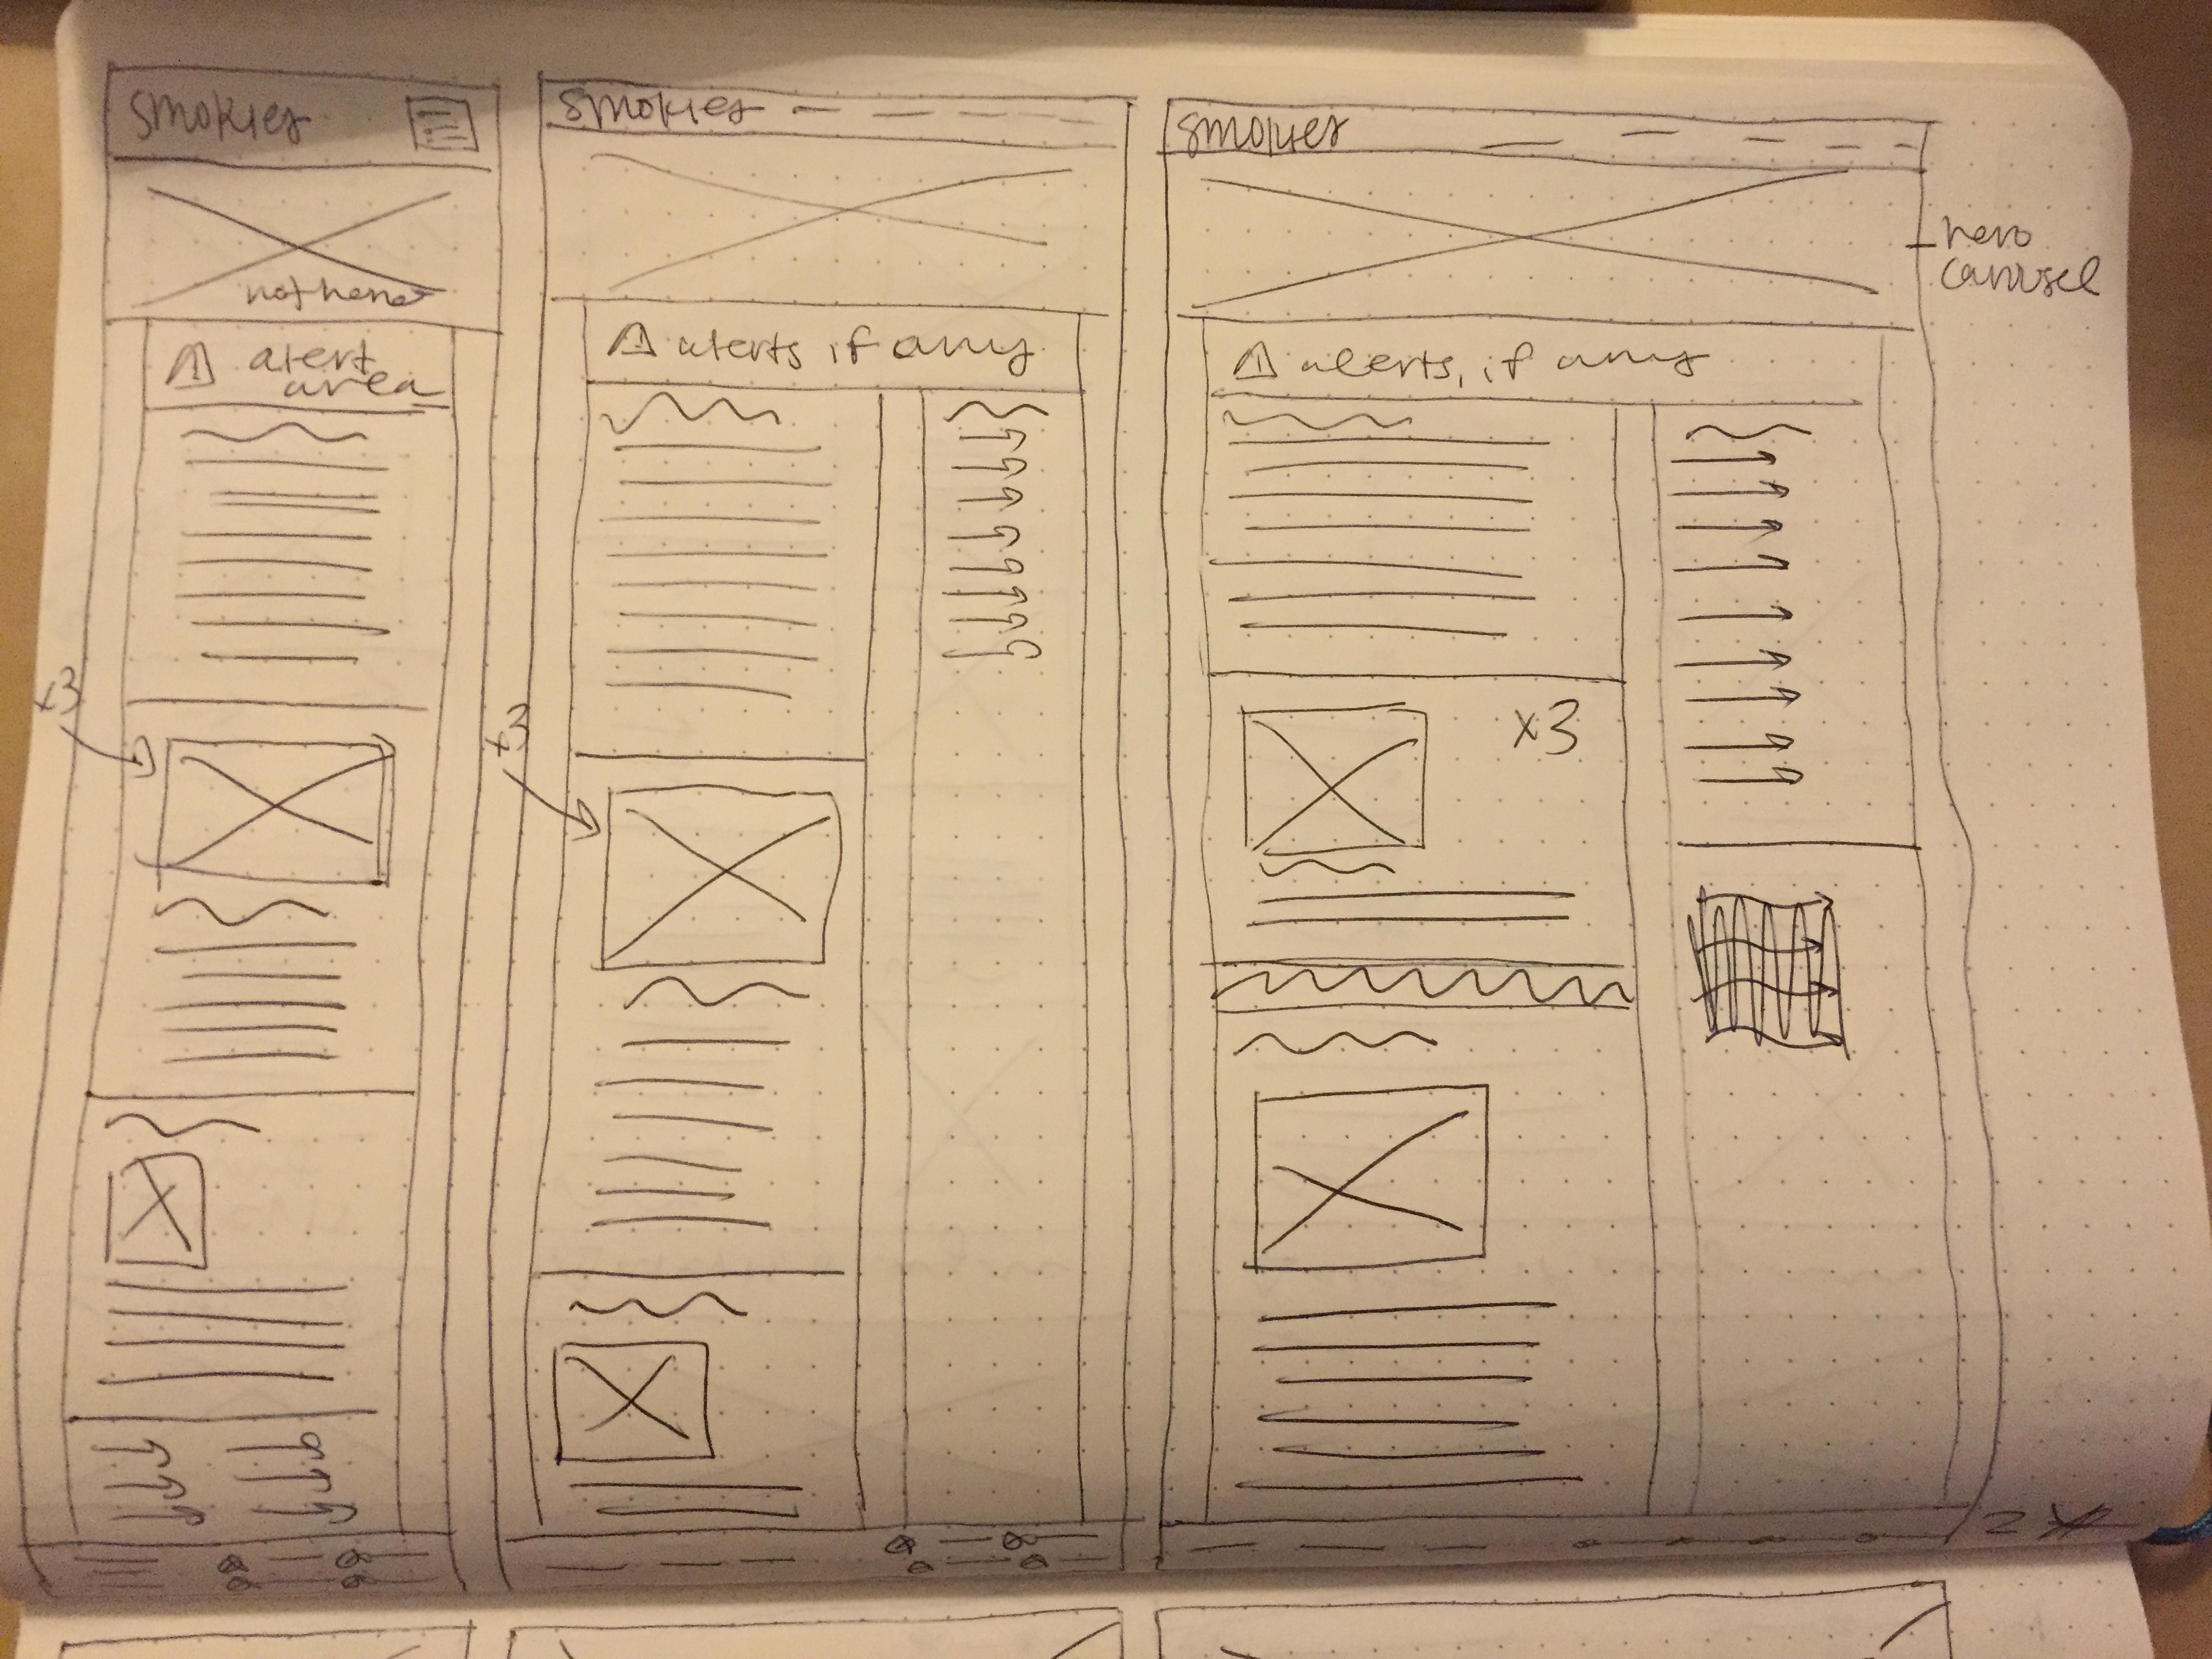 smokies
not here
⚠ alert
area
x3
smokies
⚠ alerts if any
x3
smokies
hero
carousel
⚠ alerts, if any
x3